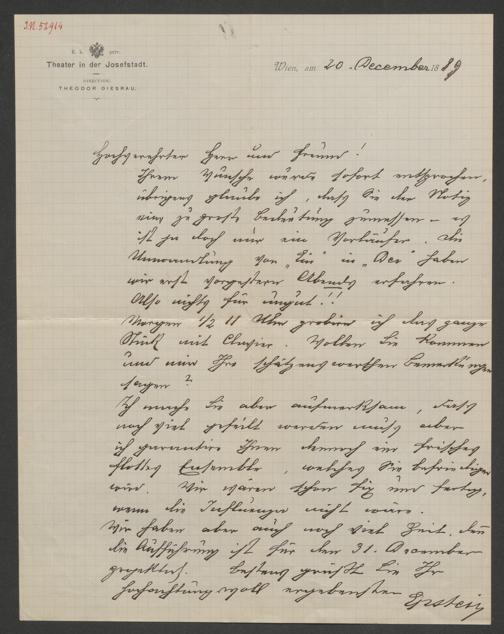 I.N. 58914
K. k. priv.
Theater in der Josefstadt.
DIRECTION:
THEODOR GIESRAU.
Wien, am 20. December 1889
Hochverehrter Herr und Freund!
Ihrem Wunsche wurde sofort entsprochen,
übrigens glaube ich, daß Sie der Notiz
eine zu große Bedeutung zumessen – es
ist ja doch nur ein Vorläufer. Die
Umwandlung von „Ein" in „Der" haben
wir erst vorgestern Abends erfahren.
Also nichts für ungut!!
Morgen 1/2 11 Uhr probire ich das ganze
Stück mit Clavier. Wollen Sie kommen
und mir Ihre schätzenswerthen Bemerkungen
sagen?
Ich mache Sie aber aufmerksam, daß
noch viel gefeilt werden muß aber
ich garantire Ihnen dennoch ein frisches
flottes Ensemble, welches Sie befriedigen
wird. Wir wären schon fix und fertig,
wenn die Influenza nicht wäre.
Wir haben aber auch noch viel Zeit, denn
die Aufführung ist für den 31. December
projektirt. Bestens grüßt Sie Ihr
hochachtungsvoll ergebenster Epstein